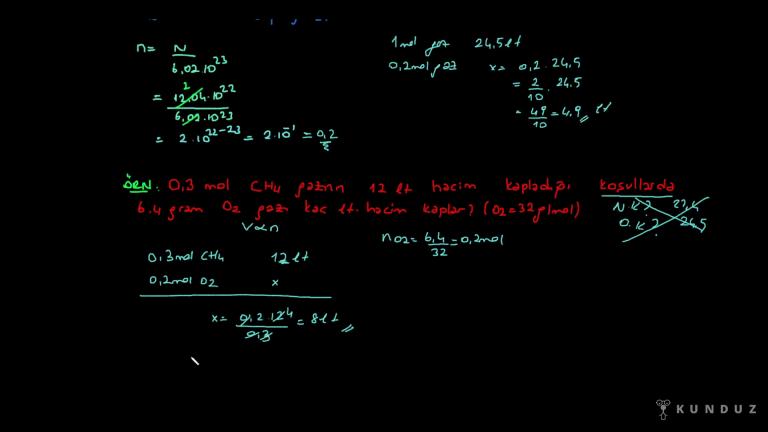 n = N / 6,02.10^23
= 12,04.10^22 / 6,02.10^23 2
= 2.10^22-23 = 2.10^-1 = 0,2
1 mol gaz 24,5 lt
0,2 mol gaz x = 0,2.24,5
= 2/10 . 24,5
= 49/10 = 4,9 lt
ÖRN: 0,3 mol CH4 gazının 12 lt hacim kapladığı koşullarda
6.4 gram O2 gazı kaç lt. hacim kaplar? (O2=32 g/mol)
N.K? 22,4
O.K? 24,5
V∝n
nO2 = 6,4/32 = 0,2 mol
0,3 mol CH4 12 lt
0,2 mol O2 x
x = 0,2.12 4 / 0,3 = 8 lt
KUNDUZ